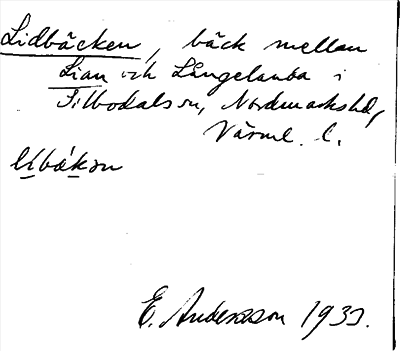 Lidbäcken, bäck mellan
Lian och Långelanda i
Silbodals sn, Nordmarks hd,
Värml. l.
E. Andersson 1933.